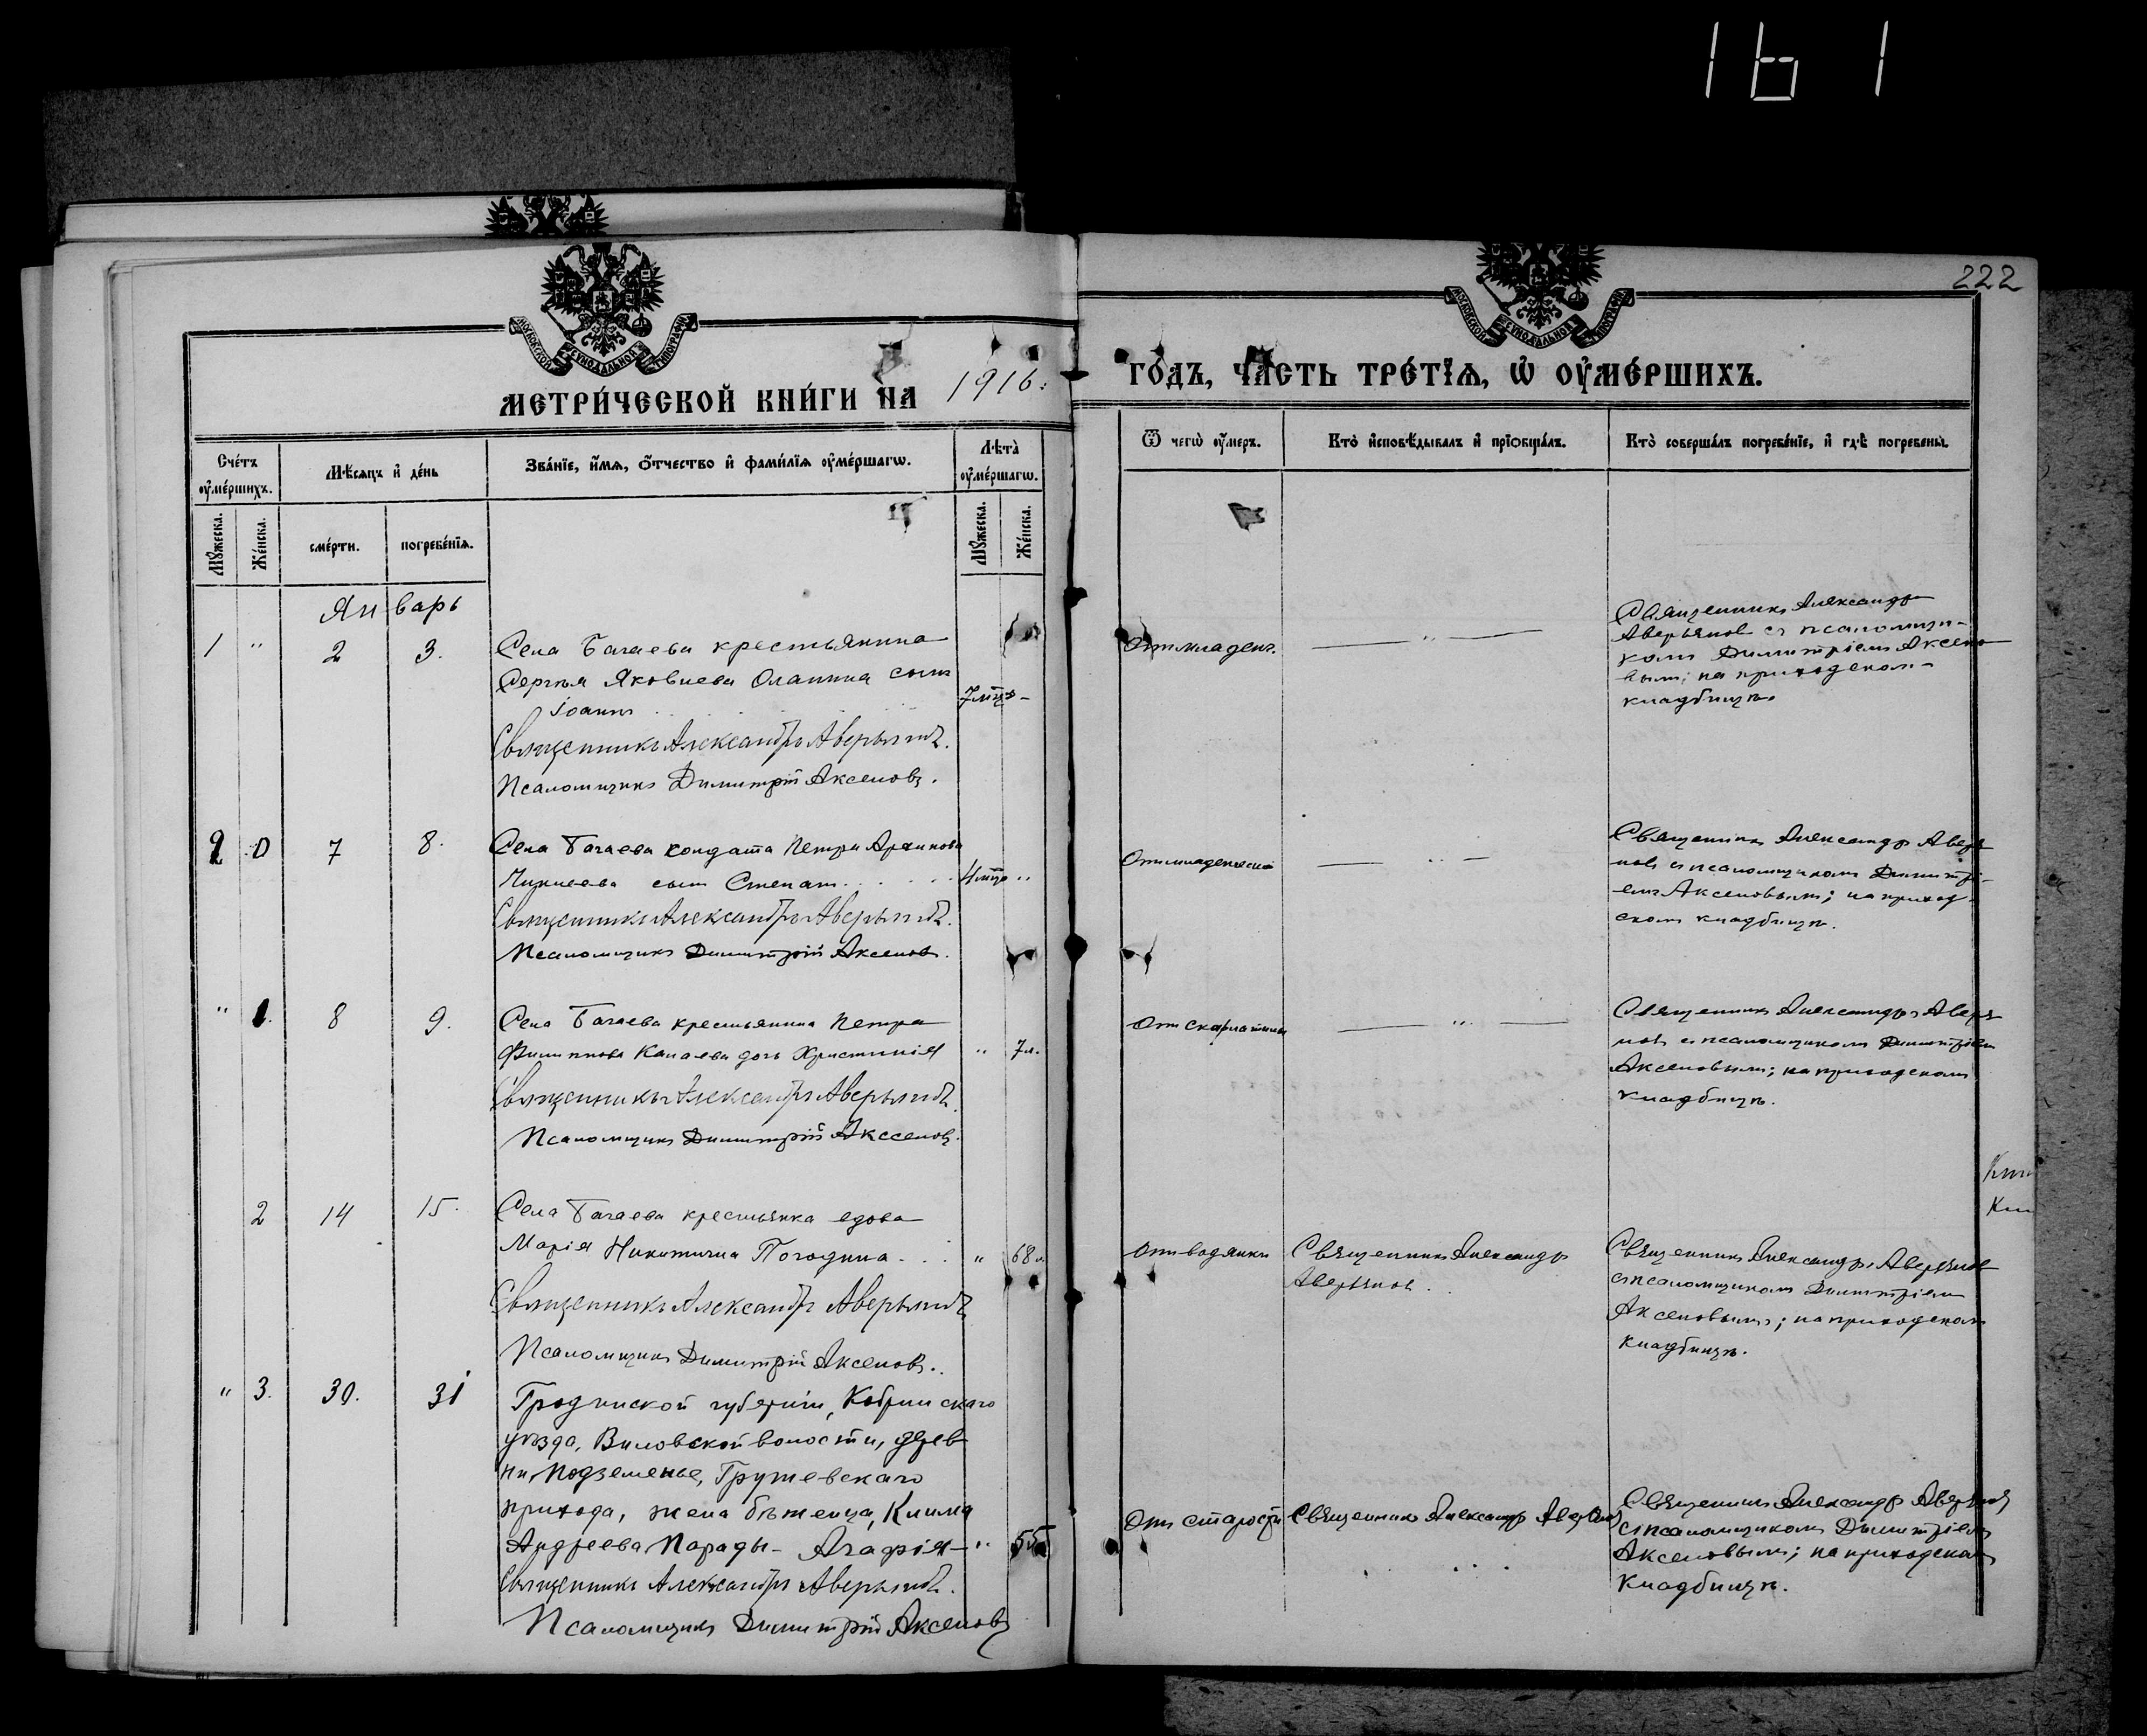 161
222
МОСКОВСКОЙ СѴНОДАЛЬНОЙ ТИПОГРАФІИ
МОСКОВСКОЙ СѴНОДАЛЬНОЙ ТИПОГРАФІИ
МЕТРИ́ЧЕСКОЙ КНИ́ГИ НА 1916.
ГО́ДЪ, ЧА́СТЬ ТРЕ́ТЇѦ, Ѡ҆ ОУ҆МЕ́РШИХЪ.
Сче́тъ оу҆ме́ршихъ.
Мѣ́сяцъ и҆ де́нь
Зва́нїе, и҆́мѧ, ѻ҆́тчество и҆ фами́лїѧ оу҆ме́ршагѡ.
Лѣ́та оу҆ме́ршагѡ.
Ѿ чегѡ̀ оу҆́меръ.
Кто̀ и҆сповѣ́дывалъ и҆ прїѡбща́лъ.
Кто̀ соверша́лъ погребе́нїе, и҆ гдѣ̀ погребены̀.
Мꙋ́жеска.
Же́нска.
сме́рти.
погребе́нїѧ.
Мꙋ́жеска.
Же́нска.
Январь
1 " 2 3.
Села Багаева крестьянина
Сергѣя Яковлева Оланина сынъ
Іоаннъ 7 мцв -
Священникъ Александръ Аверьяновъ.
Псаломщикъ Димитрій Аксеновъ.
От младенч.
— " —
Священникъ Александръ
Аверьяновъ съ псаломщи-
комъ Димитріемъ Аксено
вымъ; на приходскомъ
кладбищѣ.
2 0 7 8.
Села Багаева солдата Петра Архипова
сынъ Степанъ 4 мцв "
Священникъ Александръ Аверьяновъ.
Псаломщикъ Димитрій Аксеновъ.
От младенческ
— " —
Священникъ Александръ Аверья
новъ съ псаломщикомъ Димитрі-
емъ Аксеновымъ; на приход-
скомъ кладбищѣ.
" 1. 8 9.
Села Багаева крестьянина Петра
Филиппова Капаева дочь Христинія " 7 л.
Священникъ Александръ Аверьяновъ.
Псаломщикъ Димитрій Аксеновъ.
От скарлатины
— " —
Священникъ Александръ Аверья
новъ съ псаломщикомъ Димитріемъ
Аксеновымъ; на приходскомъ
кладбищѣ.
2 14 15.
Села Багаева крестьянка вдова
Марія Никитична Погодина " 68 л.
Священникъ Александръ Аверьяновъ
Псаломщикъ Димитрій Аксеновъ.
От водянки
Священникъ Александръ
Аверьяновъ.
Священникъ Александръ Аверьяновъ
съ псаломщикомъ Димитріемъ
Аксеновымъ; на приходскомъ
кладбищѣ.
" 3. 30. 31
Гродниской губерніи, Кобринскаго
уѣзда, волости, дерев
ни Подземенье, Грушевскаго
прихода, жена бѣженца, Клима
Андреева Парады - Агафія - " 55
Священникъ Александръ Аверьяновъ.
Псаломщикъ Димитрій Аксеновъ
Отъ старости
Священникъ Александръ Аверьяновъ
Священникъ Александръ Аверьяновъ
съ псаломщикомъ Димитріемъ
Аксеновымъ; на приходскомъ
кладбищѣ.